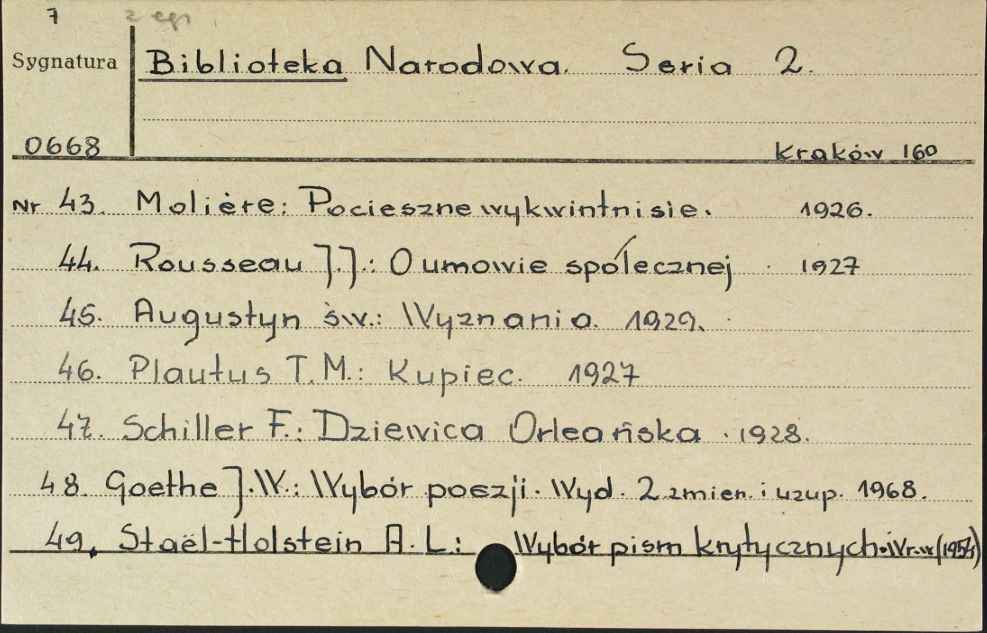 7 2 egz
Sygnatura Biblioteka Narodowa. Seria 2.
0668 Kraków 160
Nr 43. Molière: Pocieszne wykwintnisie. 1926.
44. Rousseau J.J.: O umowie społecznej 1927
45. Augustyn św.: Wyznania. 1929.
46. Plautus T.M.: Kupiec. 1927
47. Schiller F.: Dziewica Orleańska. 1928.
48. Goethe J.W.: Wybór poezji. Wyd. 2 zmien. i uzup. 1968.
49. Staël-Holstein A.L.: Wybór pism krytycznych. Wr.w (1954)